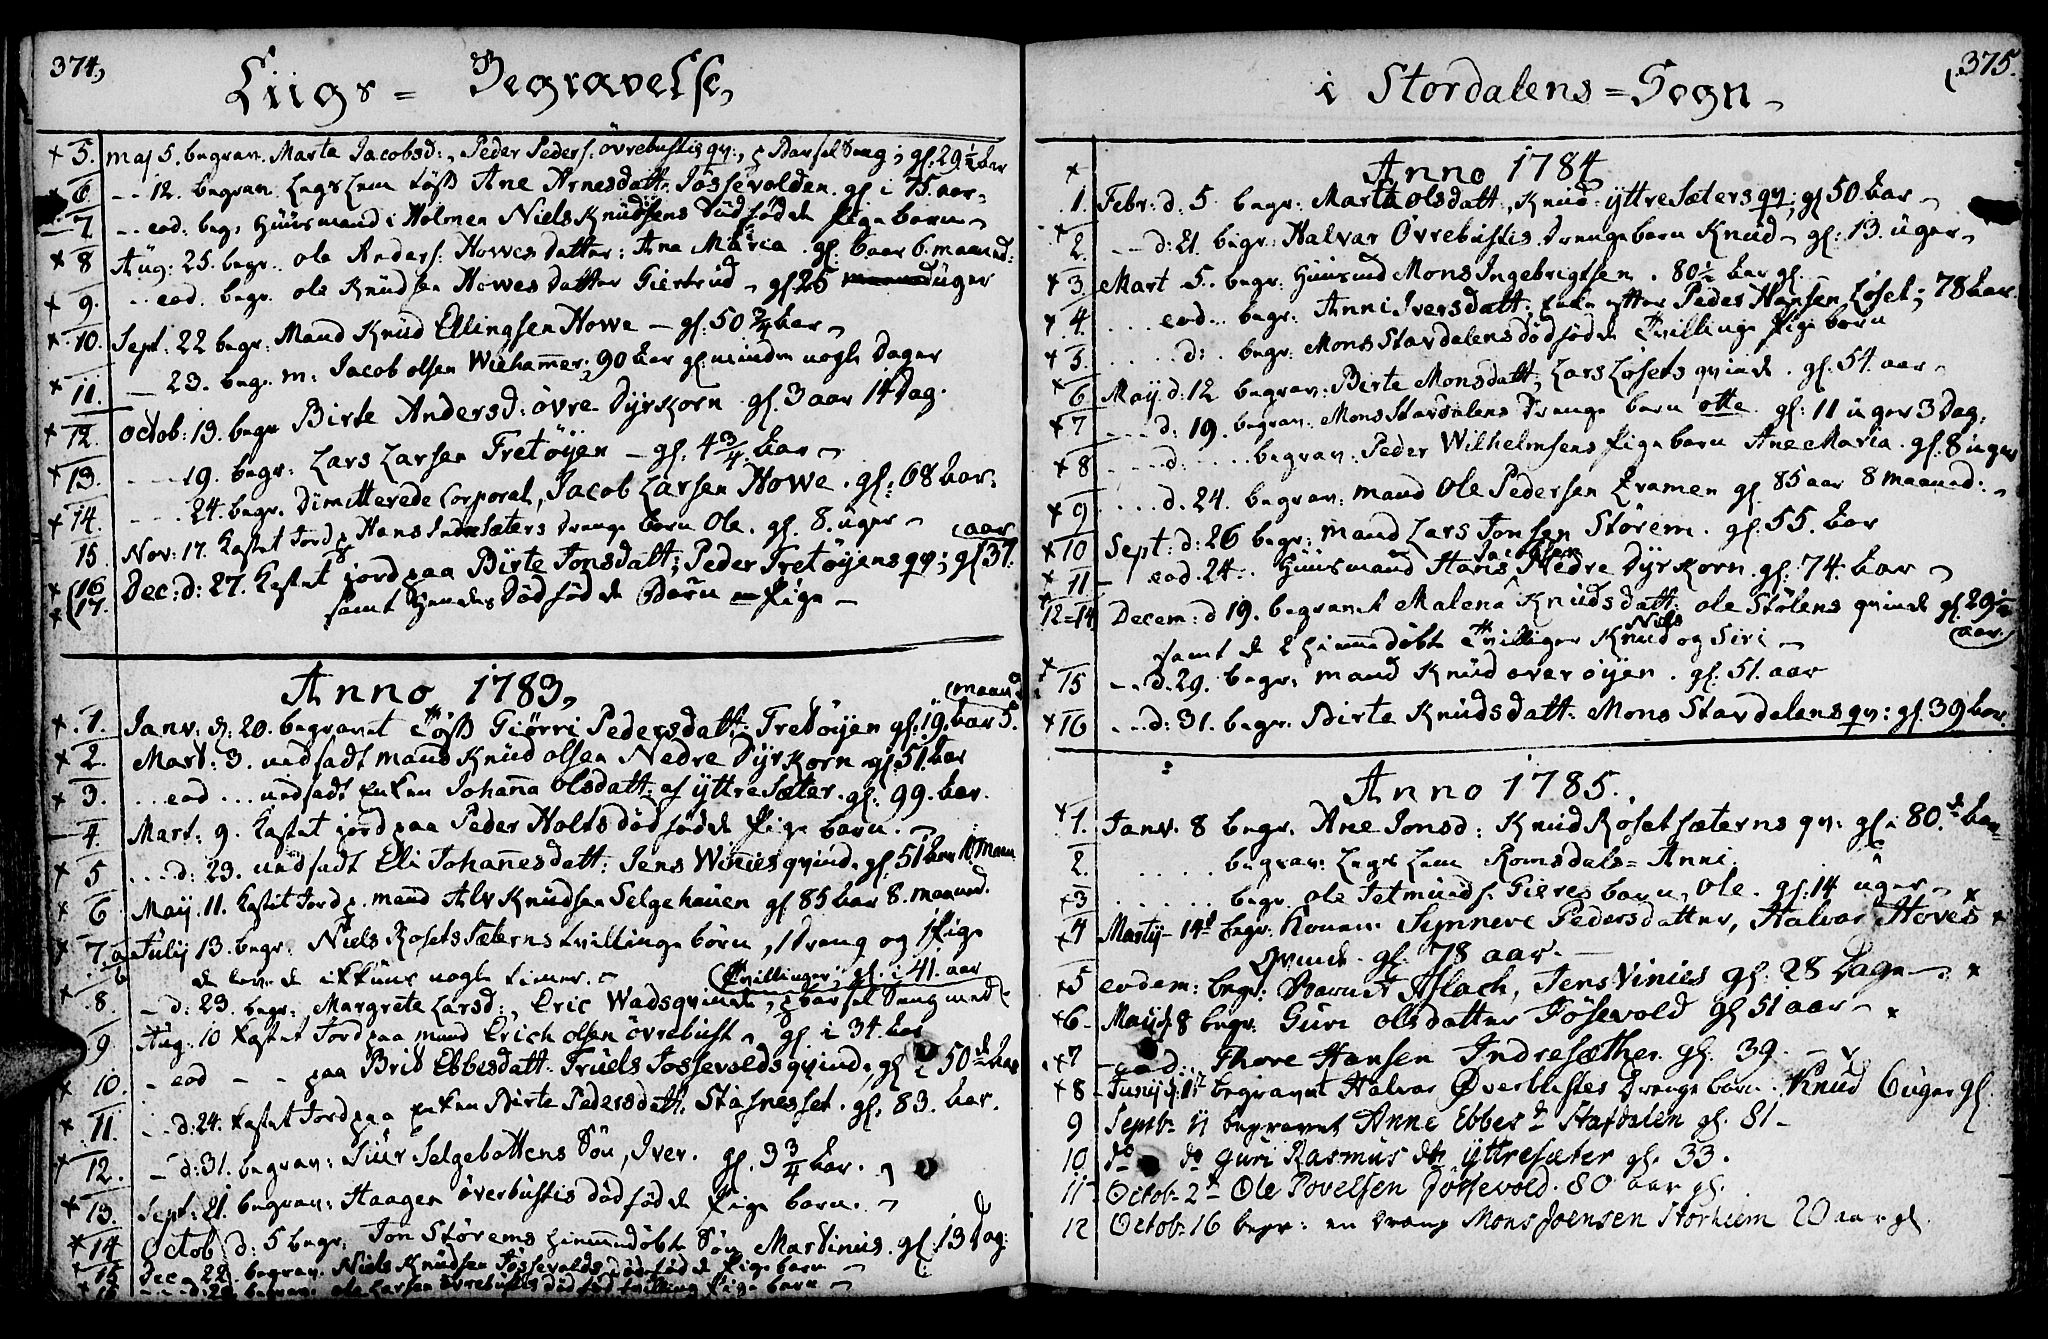 374,
Liigs = Begravelse,
5. maj 5. begrav. Marta Jacobsd:, Peder Peders. övrebustis qv:, p Barsel Seng, gl. 29½ Aar
6 -- 12. begrav Legs Lem Ane Arnesdatt: Jössevolden. gl i 75 aar.
7. -- eod. beg. Huusmand i Holmen Niels Knudsens Dödfödde Pige barn
8 Aug: 25. begr. ole Anders. Howes datter: Ane Maria. gl. 6 aar 6. maaned:
9. -- eod. begr. ole Knudsen Howes datter Giertrud, gl 25 uger
10. Sept: 22 begr. Mand Knud Ellingsen Howe - gl: 50 ¾ Aar
11. - 23. begr. m: Jacob olsen Wiehammer, 90 Aar gl. minder nogle Dager
12. octob: 13. begr Birte Andersd: övre Dyrkorn gl. 3 aar 14 Dag.
13. ---19. begr. Lars Larsen Fretöyen - gl. 4 ¾ Aar
14. ---24. begr. Dimitterede Corporal, Jacob Larsen Howe. gl: 68 Aar.
15. Nov: 17. Kastet Jord p Hans Indresæters drenge barn Ole. gl. 8. uger
16 Dec: d: 27. Kastet jord paa Birte Jonsdatt: Peder Fretöyens qv; gl 37. aar
17. samt hendes Dödfödde Barn en Pige -
Anno 1783,
1. Janv. d: 20. begravet Giörri Pedersdatt: Fretöyen gl. 19. Aar 5. maan
2. Mart: 3. nedsadt mand Knud olsen Nedre Dyrkorn gl. 51 Aar
3. .. eod ... nedsadt Enken Johanna Olsdatt: af yttre Sæter. gl: 99. Aar.
4. Mart: 9. Kastet jord paa Peder Holts dödfödde Pige barn.
5 ...d: 23. nedsadt Eli Johannesdatt: Jens Winies qvinde gl. 51 Aar 10 maan
6 Maij. 11. Kastet Jord p. mand Alv Knudsen Selgehauen gl 85 Aar 8. maaned.
7. a July 13. begr. Niels Rosets Sæterns tvillinge börn, 1 Dreng og 1 Pige
b de levede ikkuns nogle timer.
8. - d: 23. begr. Margrete Larsd:, Eric Wads qvinde, p barsel Seng med Tvillinger, gl. i 41. aar
9. Aug. 10 Kastet Jord paa mand Erich olsen övrebust, gl. i 34. Aar
10. - eod - - paa Brit Ebbesdatt. Truels Jossevolds qvinde, gl i 50de Aar
11. - - d: 24. Kastet Jord paa Enken Birte Pedersdatt: Stafnesset. gl. 83. Aar.
12. - d: 31. begrav: Siur Selgebottens Sön, Iver. gl. 3 ¾ Aar.
13. Sept: 21. begrav: Haagen överbustis dödfödde Pige barn.
14 Octob: d: 5 begr. Jon Störems hiemmedöbte Sön Martinus. gl. 13 Dag:
15 Dec 22. begrav. Niels Knudsen Jössevolds dödfödde Pige barn
ole Larsen övrebustis dödfödde Pige barn
375.
i Stordalens = Sogn
Anno 1784
1. Febr: d: 5 begr: Marta olsdatt, Knud yttre Sæters qv; gl 50 Aar
2. -- d: 21. begr: Halvar Övrebustis drenge barn Knud, gl: 13. uger
3 Mart 5. begr: Huusmd Mons Ingebrigtsen. 80½ Aar gl.
4. ... eod.. begr: Anni Iversdatt: Enke efter Peder Hansen Löset; 78 Aar
5 .... d: . begr: Mons Stavdalens dödfödde Tvillinge Pige börn
6 Maij d: 12 begrav: Birte Monsdatt, Lars Lösets qvinde. gl. 54. aar
7 ... d: 19. begrav: Mons Stavdalens drenge barn otte. gl: 11 uger 3 Dag:
8 ....d. .... begrav: Peder Wilhelmsens Pige barn Ane Maria. gl. 8 uger
9 .... d. 24. begrav: mand Ole Pedersen Kramen gl 85 aar 8 maaned:
10 Sept: d: 26 begr: mand Lars Jonsen Störem. gl. 55. Aar
11 - eod. 24. Huusmand Hans Jacobsen Nedre Dyrkorn. gl: 74. Aar
12=14 Decem: d 19. begravet Malena Knudsdatt: ole Stölens qvinde gl. 29½ aar.
samt de 2 hiemmedöbte Tvillinger Niels Knud og Siri
15 - - d. 29. begr: mand Knud over öyen. gl. 51. aar
16 - - d: 31. begr. Birte Knudsdatt: Mons Stavdalens qv: gl. 39 Aar
Anno 1785.
1. Janv. 8 begr. Ane Jonsd: Knud Rosetsæterns qv: gl i 80.de Aar
2. ..... begrav: Legs Lem Romsdals = Anni.
3 ...... begr. ole Tetmunds. Gieres barn, Ole. gl. 14 uger
4 Martij 14d begr. Konen Synneve Pedersdatter, Halvar Hoves
Qvinde. gl. 78 aar.
5 eodem: begr: Barnet Aslach, Jens Vinies gl. 28 Dage
6 Maij d. 8 begr. Guri olsdatter Jösevold gl 51 aar
7 - eod. Thore Hansen Indresæther. gl. 39.
8 begravet Halvar Överbustes Drenge barn. Knud 6 uger gl.
9 Septb: 11 begravet Anne Ebbes D Stafdalen gl. 81 -
10 do do Guri Rasmus dtr yttresæter gl. 33.
11 Octob- 2d Ole Povelsen Jössevold. 80 aar gl.
12 Octob- 16 begr: en Dreng Mons Joensen Storhiem 20 aar gl.